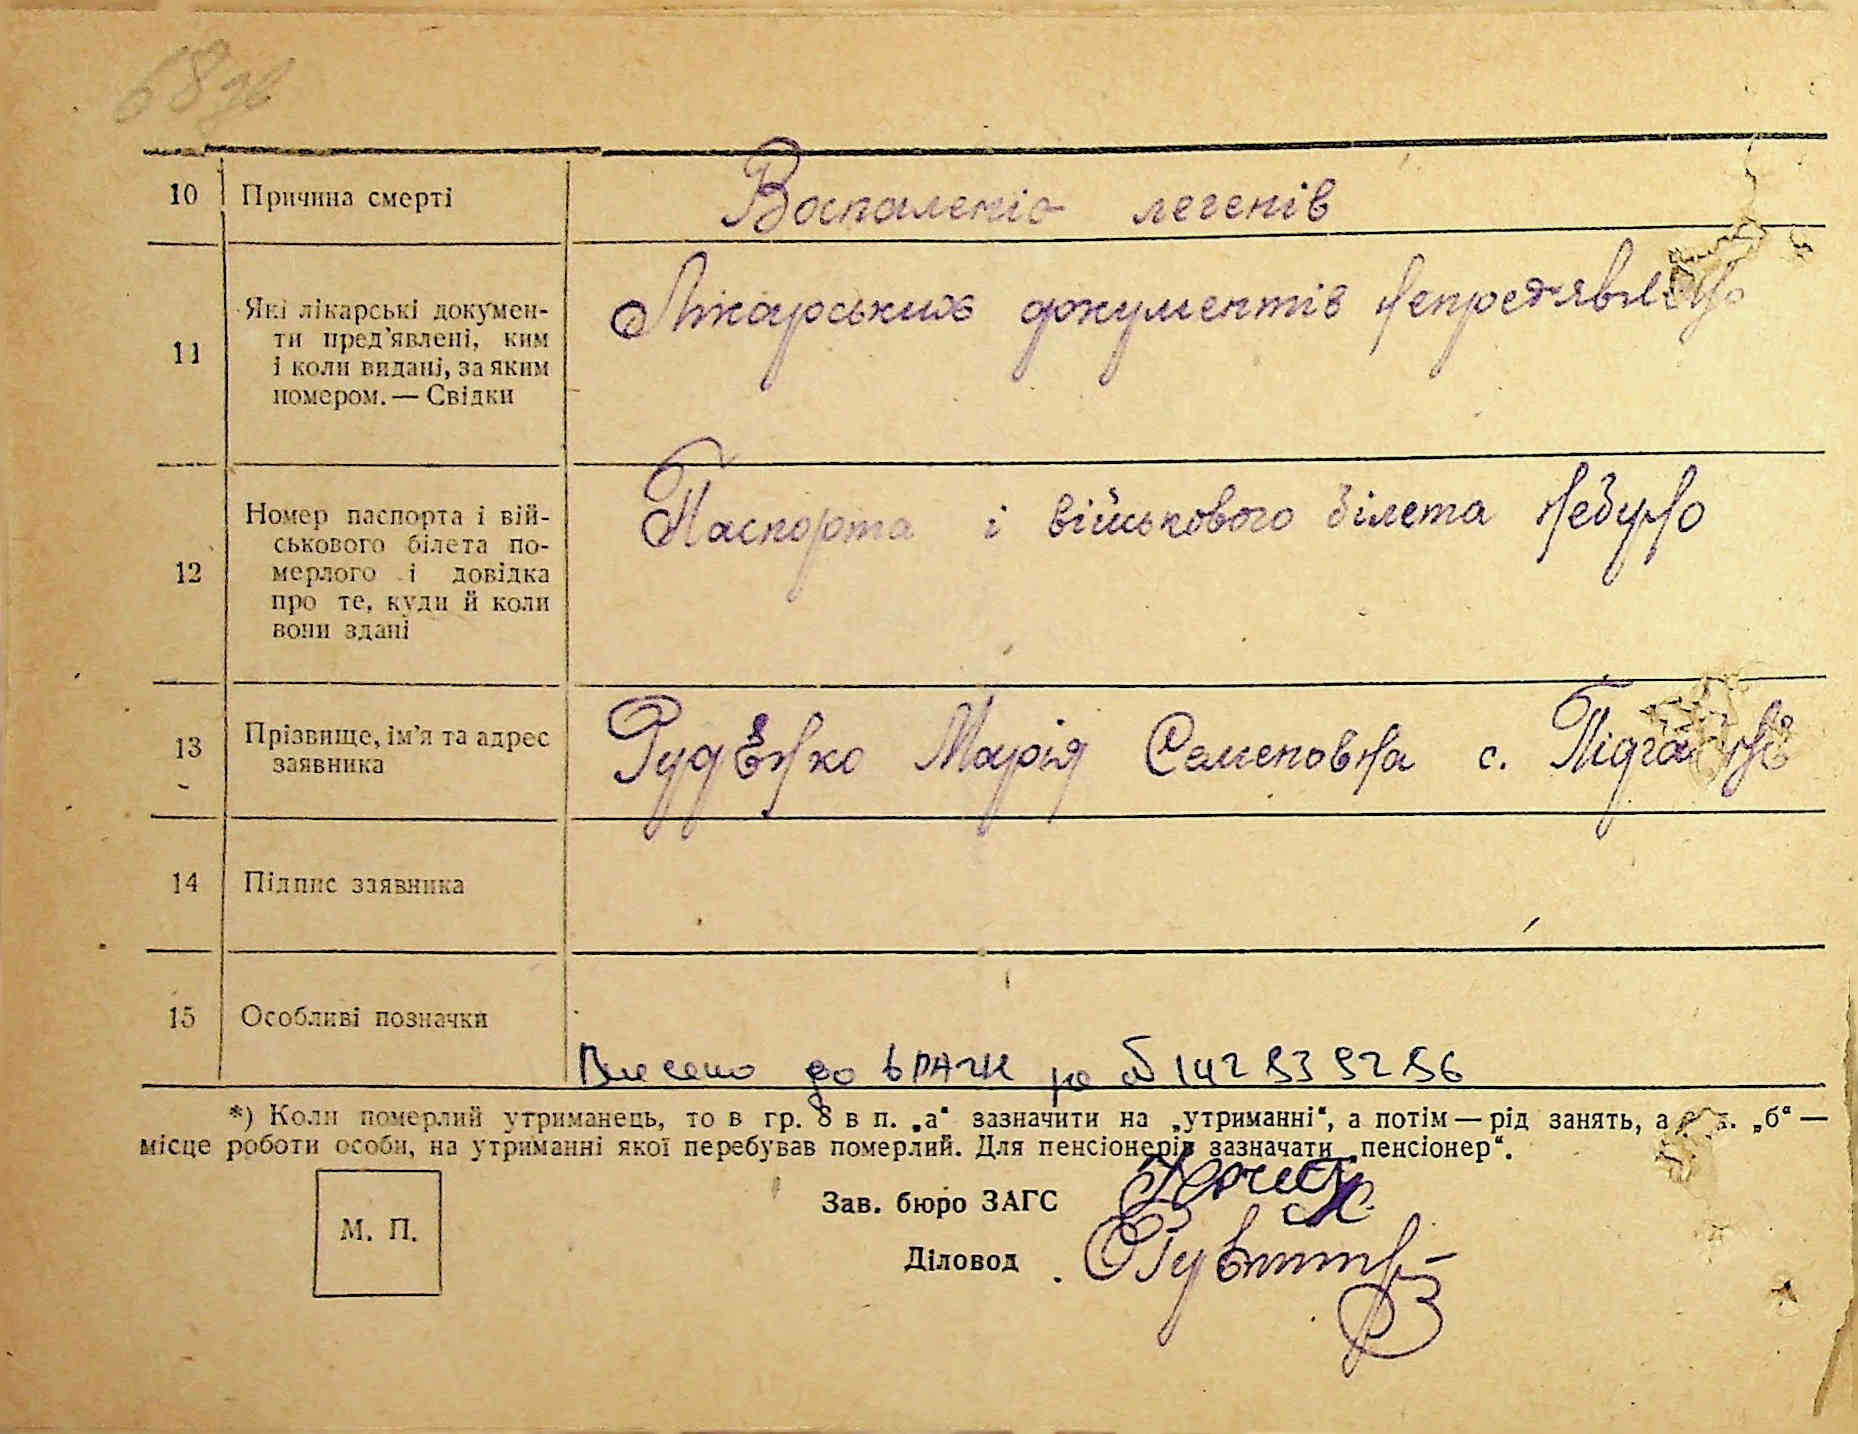 68 зв
10 Причина смерті Воспаленіє легенів
11 Які лікарські докумен-
ти пред'явлені, ким
і коли видані, за яким
номером. — Свідки
Лікарських документів непредявлено
12 Номер паспорта і вій-
ськового білета по-
мерлого і довідка
про те, куди й коли
вони здані
Паспорта і військового білета небуло
13 Прізвище, ім'я та адрес
заявника
Руденко Марія Семеповна с.
14 Підпис заявника
15 Особливі позначки
Внесено до ДРАЦС
*) Коли померлий утриманець, то в гр. 8 в п. „а“ зазначити на „утриманні“, а потім — рід занять, а „б“ —
місце роботи особи, на утриманні якої перебував померлий. Для пенсіонерів зазначати „пенсіонер“.
Зав. бюро ЗАГС
М. П.
Діловод